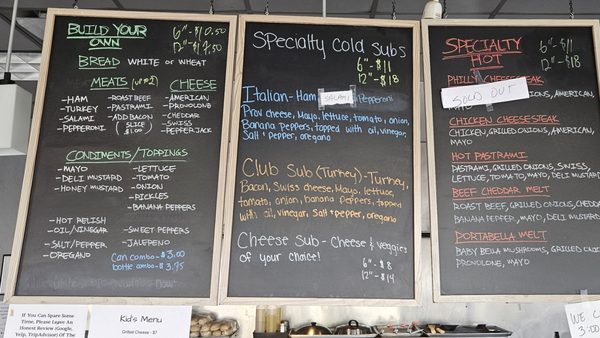 BUILD YOUR
OWN
6"- $10.50
12"- $17.50
BREAD WHITE OR WHEAT
MEATS (UP TO 2)
-HAM
-TURKEY
-SALAMI
-PEPPERONI
-ROAST BEEF
-PASTRAMI
-ADD BACON
(SLICE
$1.00)
CHEESE
-AMERICAN
-PROVOLONE
-CHEDDAR
-SWISS
-PEPPERJACK
CONDIMENTS/TOPPINGS
-MAYO
-DELI MUSTARD
-HONEY MUSTARD
-HOT RELISH
-OIL/VINEGAR
-SALT/PEPPER
-OREGANO
-LETTUCE
-TOMATO
-ONION
-PICKLES
-BANANA PEPPERS
-SWEET PEPPERS
-JALEPENO
Can combo - $3.00
bottle combo - $3.75
Specialty Cold Subs
6"- $11
12"- $18
Italian - Ham SALAMI Pepperoni
Prov cheese, Mayo, lettuce, tomato, onion,
Banana Peppers, topped with oil, vinegar,
Salt & pepper, oregano
Club Sub (Turkey) - Turkey,
Bacon, Swiss cheese, Mayo, lettuce,
tomato, onion, banana peppers, topped
with oil, vinegar, Salt & pepper, oregano
Cheese Sub - Cheese & veggies
of your choice!
6"- $8
12"- $14
SPECIALTY
HOT
6"- $11
12"- $18
PHILLY CHEESESTEAK
SOLD OUT
ONIONS, AMERICAN,
MAYO
CHICKEN CHEESESTEAK
CHICKEN, GRILLED ONIONS, AMERICAN,
MAYO
HOT PASTRAMI
PASTRAMI, GRILLED ONIONS, SWISS,
LETTUCE, TOMATO, MAYO, DELI MUSTARD
BEEF CHEDDAR MELT
ROAST BEEF, GRILLED ONIONS, CHEDDAR
BANANA PEPPER, MAYO, DELI MUSTARD
PORTABELLA MELT
BABY BELLA MUSHROOMS, GRILLED ONIONS
PROVOLONE, MAYO
If You Can Spare Some
Time, Please Leave An
Honest Review (Google,
Yelp, TripAdvisor) Of The
Kid's Menu
Grilled Cheese - $7
CHI
3.00